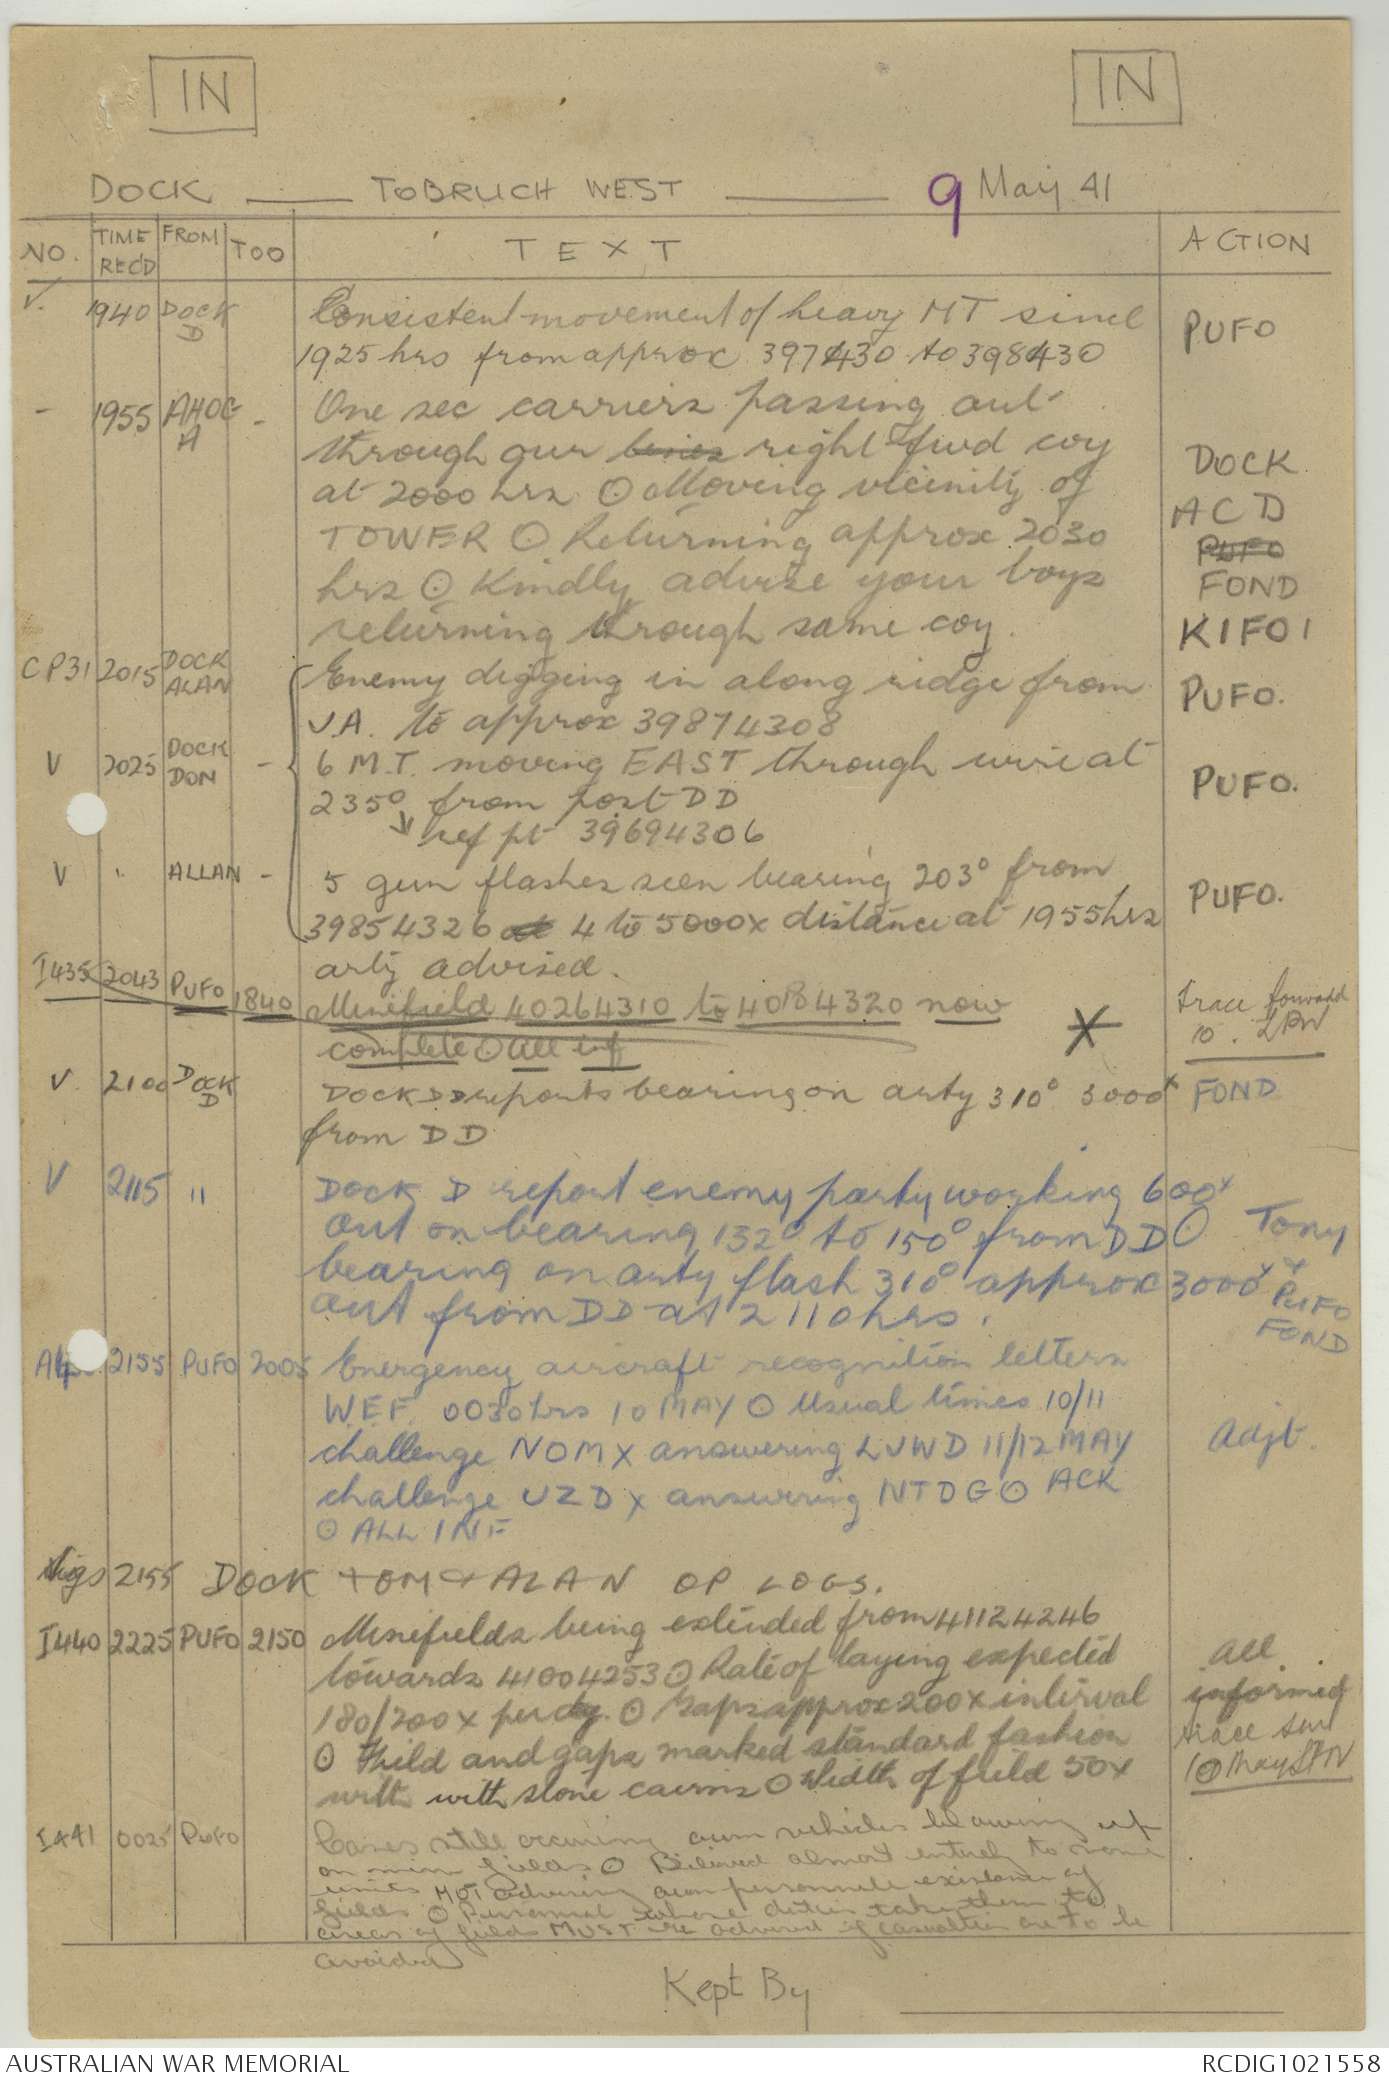 IN IN
DOCK TOBRUCH WEST 9 May 41
NO. TIME REC'D FROM TOO TEXT ACTION
V. 1940 DOCK D Consistent movement of heavy MT since PUFO
1925 hrs from approx 397430 to 398430
- 1955 AHOG A - One sec carriers passing out
through our lines right fwd coy DOCK
at 2000 hrs ⊙ Moving vicinity of ACD
TOWER ⊙ Returning approx 2030 PUFO
hrs ⊙ Kindly advise your boys FOND
returning through same coy. KIFO1
CP31 2015 DOCK ALAN Enemy digging in along ridge from PUFO.
V.A. to approx 39874308
V 2025 DOCK DON - 6 M.T. moving EAST through wire at PUFO.
235° from post DD
ref pt 39694306
V " ALLAN - 5 gun flashes seen bearing 203° from PUFO.
39854326 at 4 to 5000x distance at 1955 hrs
arty advised.
I435 2043 PUFO 1840 Minefield 40264310 to 4084320 now Trace forward
complete ⊙ All inf 10.
V. 2100 DOCK D DOCK DD reports bearing on arty 310° 3000x FOND
from DD
V 2115 " DOCK D report enemy party working 600x
out on bearing 132° to 150° from DD ⊙ Tony
bearing on arty flash 310° approx 3000x PUFO
out from DD at 2110 hrs. FOND
2155 PUFO 2005 Emergency aircraft recognition letters
W.E.F. 0030 hrs 10 MAY ⊙ Usual times 10/11
challenge NOM x answering LVWD 11/12 MAY Adjt.
challenge UZD x answering NTDG ⊙ ACK
⊙ ALL INF
Sigs 2155 DOCK TOM & ALAN OP LOGS.
I440 2225 PUFO 2150 Minefields being extended from 41124246
towards 41004253 ⊙ Rate of laying expected All
180/200x per day. ⊙ Gaps approx 200x interval informed
⊙ Field and gaps marked standard fashion trace sent
with with stone cairns ⊙ Width of field 50x 10 May
I441 0025 PUFO Cases still occuring own vehicles blowing up
on mine fields ⊙ Believed almost entirely to some
units NOT advising own personnel existence of
fields ⊙ Personnel whose duties take them to
areas of fields MUST be advised if casualties are to be
avoided
Kept By
AUSTRALIAN WAR MEMORIAL RCDIG1021558